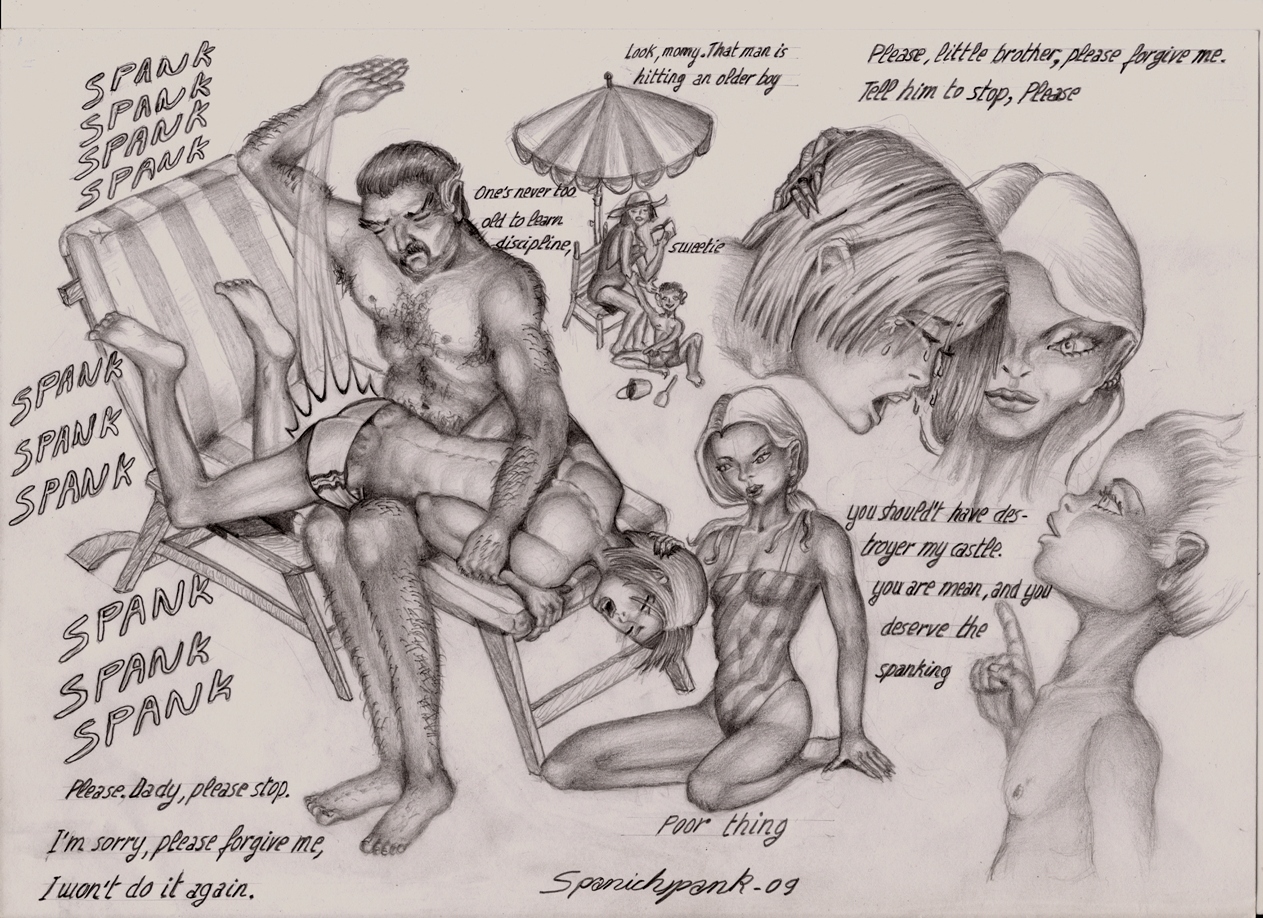 SPANK
SPANK
SPANK
SPANK
Look, momy. That man is
hitting an older boy
Please, little brother, please forgive me.
Tell him to stop, Please
One's never too
old to learn
discipline,
sweetie
SPANK
SPANK
SPANK
you should't have des-
troyer my castle.
you are mean, and you
deserve the
spanking
SPANK
SPANK
SPANK
Please. Dady, please stop.
I'm sorry, please forgive me,
I won't do it again.
Poor thing
Spanichspank-09